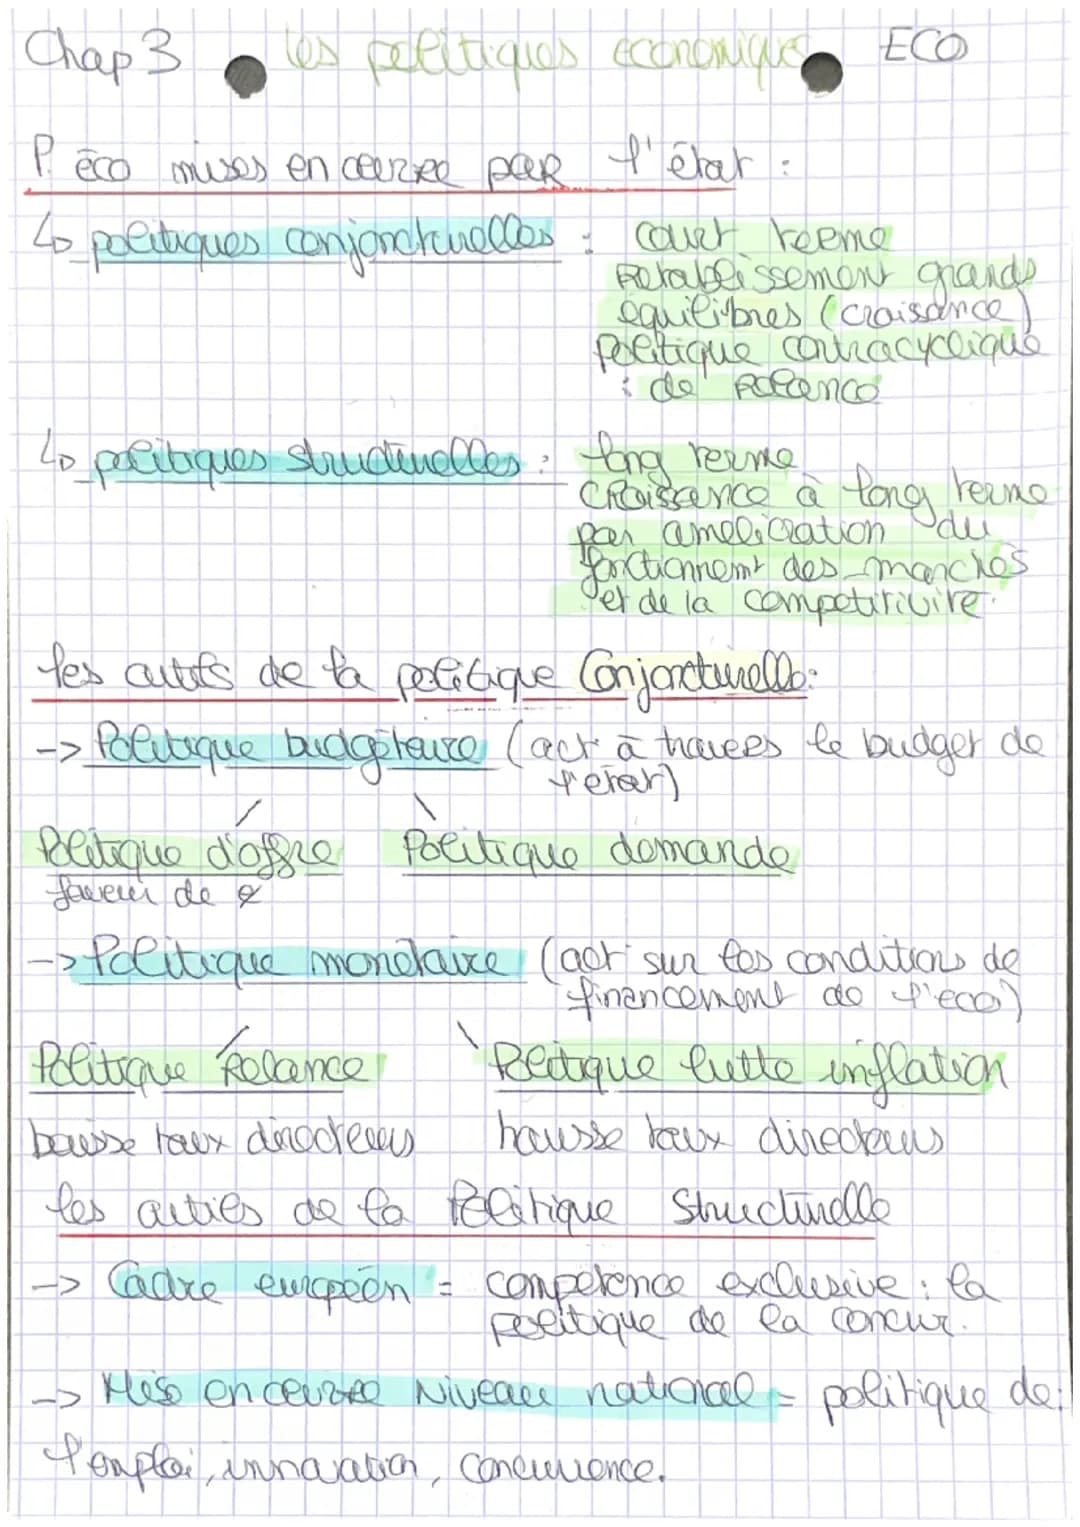 Chap 3 les politiques economiques ECO
P. éco mises en œuvre par l'état :
↳ politiques conjoncturelles : court terme
retablissement grands
équilibres (croissance)
politique contracyclique
: de relance
↳ politiques structurelles : long terme
croissance à long terme
par amelioration du
fonctionnemt des marchés
et de la competitivité.
les outils de la politique Conjoncturelle :
-> Politique budgétaire (act° à travers le budget de
l'état)
Politique d'offre Politique demande
faveur de
-> Politique monétaire (act° sur les conditions de
financement de l'eco)
Politique Relance Politique lutte inflation
baisse taux directeurs hausse taux directeurs
les outils de la Politique Structurelle
-> Cadre européen = compétence exclusive : la
politique de la concur.
-> Mise en œuvre Niveau national = politique de :
l'emploi, innovation, concurrence.